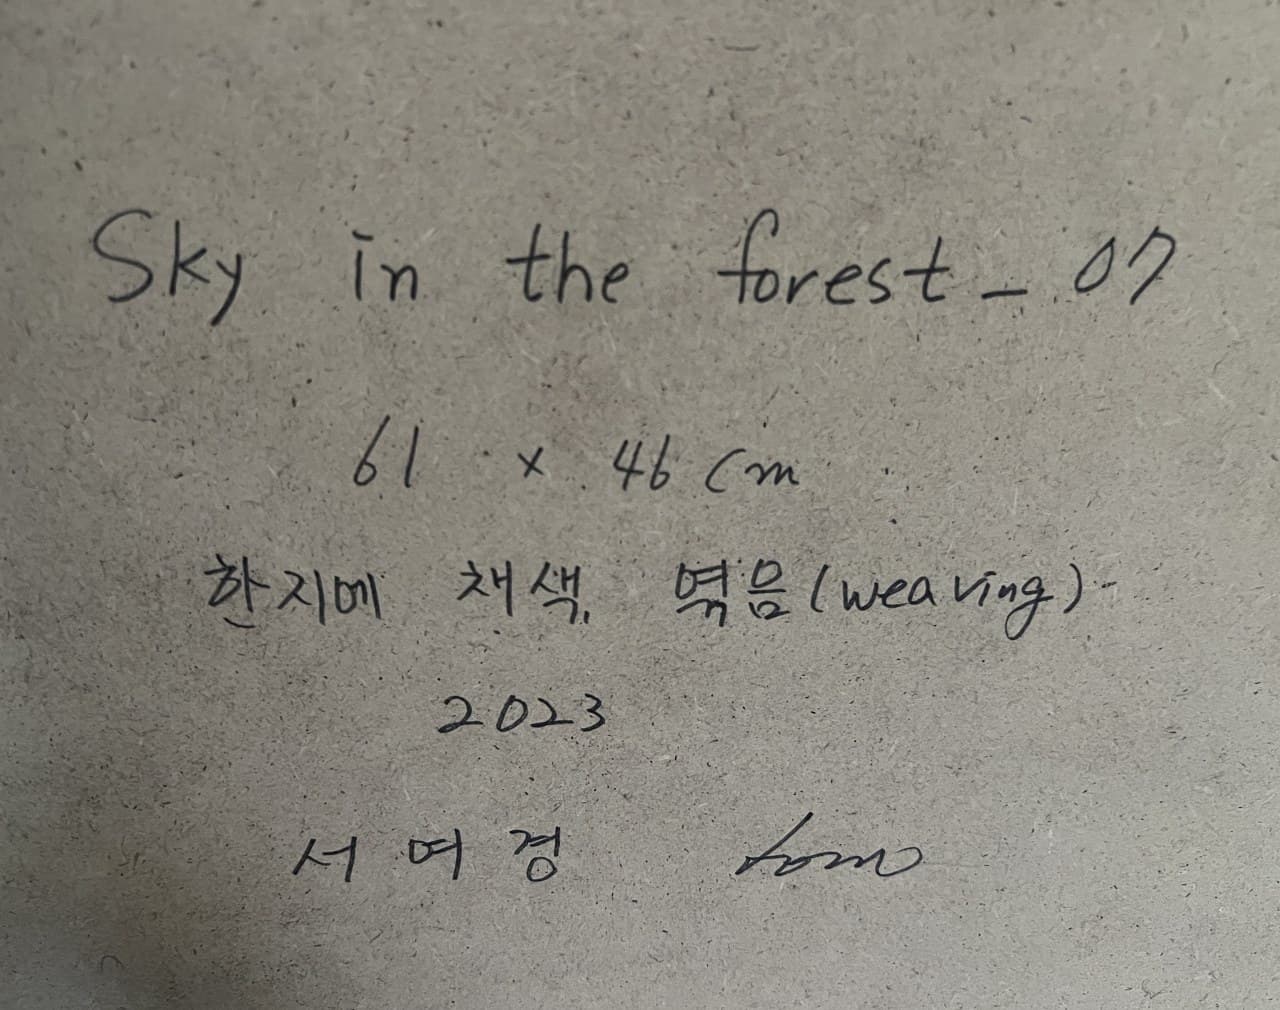 Sky in the forest_07
61 x 46 cm
한지에 채색, 엮음(weaving)
2023
서여경